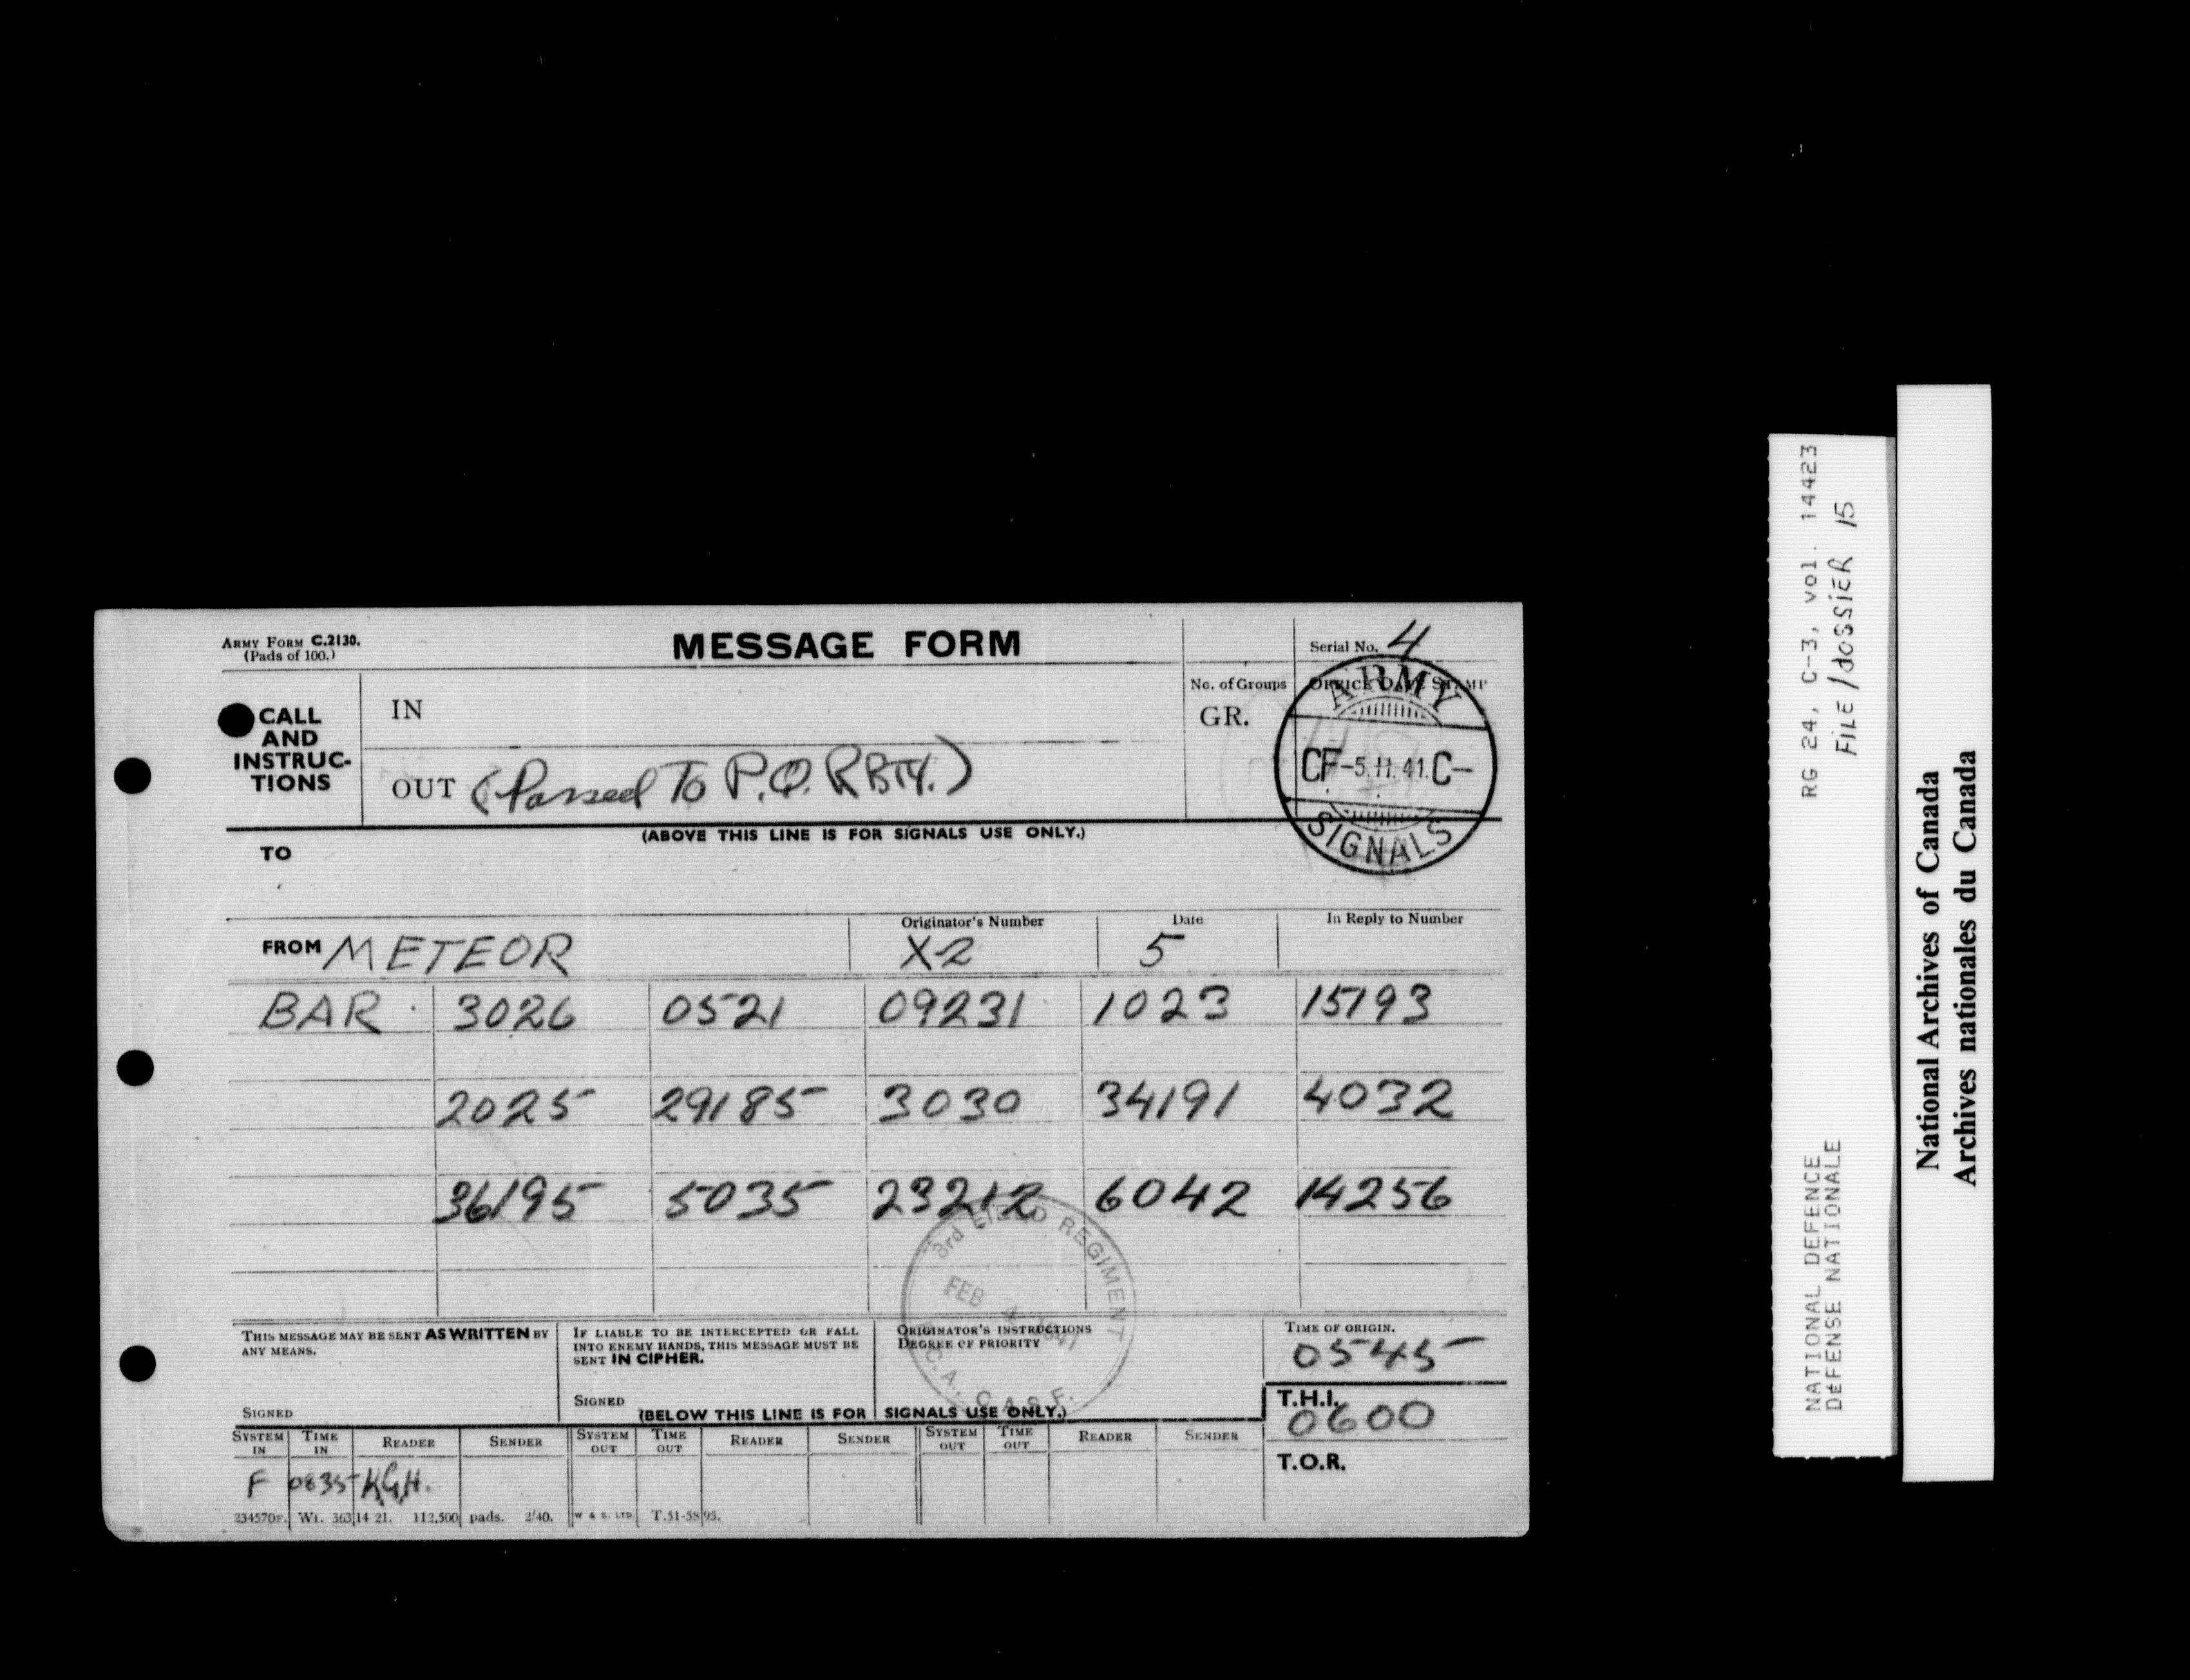 ARMY FORM C.2130.
(Pads of 100.)
MESSAGE FORM
Serial No. 4
CALL
AND
INSTRUC-
TIONS
IN
No. of Groups
GR.
OFFICE DATE STAMP
ARMY
CF-5.11.41.C-
SIGNALS
OUT (Passed To P.O. R BTY.)
(ABOVE THIS LINE IS FOR SIGNALS USE ONLY.)
TO
FROM METEOR
Originator's Number
X-2
Date
5
In Reply to Number
BAR 3026 0521 09231 1023 15193
2025 29185 3030 34191 4032
36195 5035 23212 6042 14256
3rd FIELD REGIMENT
FEB 4 1941
C.A., C.A.S.F.
THIS MESSAGE MAY BE SENT AS WRITTEN BY
ANY MEANS.
SIGNED
IF LIABLE TO BE INTERCEPTED OR FALL
INTO ENEMY HANDS, THIS MESSAGE MUST BE
SENT IN CIPHER.
SIGNED
ORIGINATOR'S INSTRUCTIONS
DEGREE OF PRIORITY
TIME OF ORIGIN.
0545
T.H.I.
0600
T.O.R.
(BELOW THIS LINE IS FOR SIGNALS USE ONLY.)
SYSTEM IN TIME IN READER SENDER SYSTEM OUT TIME OUT READER SENDER SYSTEM OUT TIME OUT READER SENDER
F 0835 K.G.H.
234570F. Wt. 36314 21. 112,500 pads. 2/40. W & S. LTD. T.51-5895.
RG 24, C-3, vol. 14423
FILE/dOSSiER 15
NATIONAL DEFENCE
DÉFENSE NATIONALE
National Archives of Canada
Archives nationales du Canada